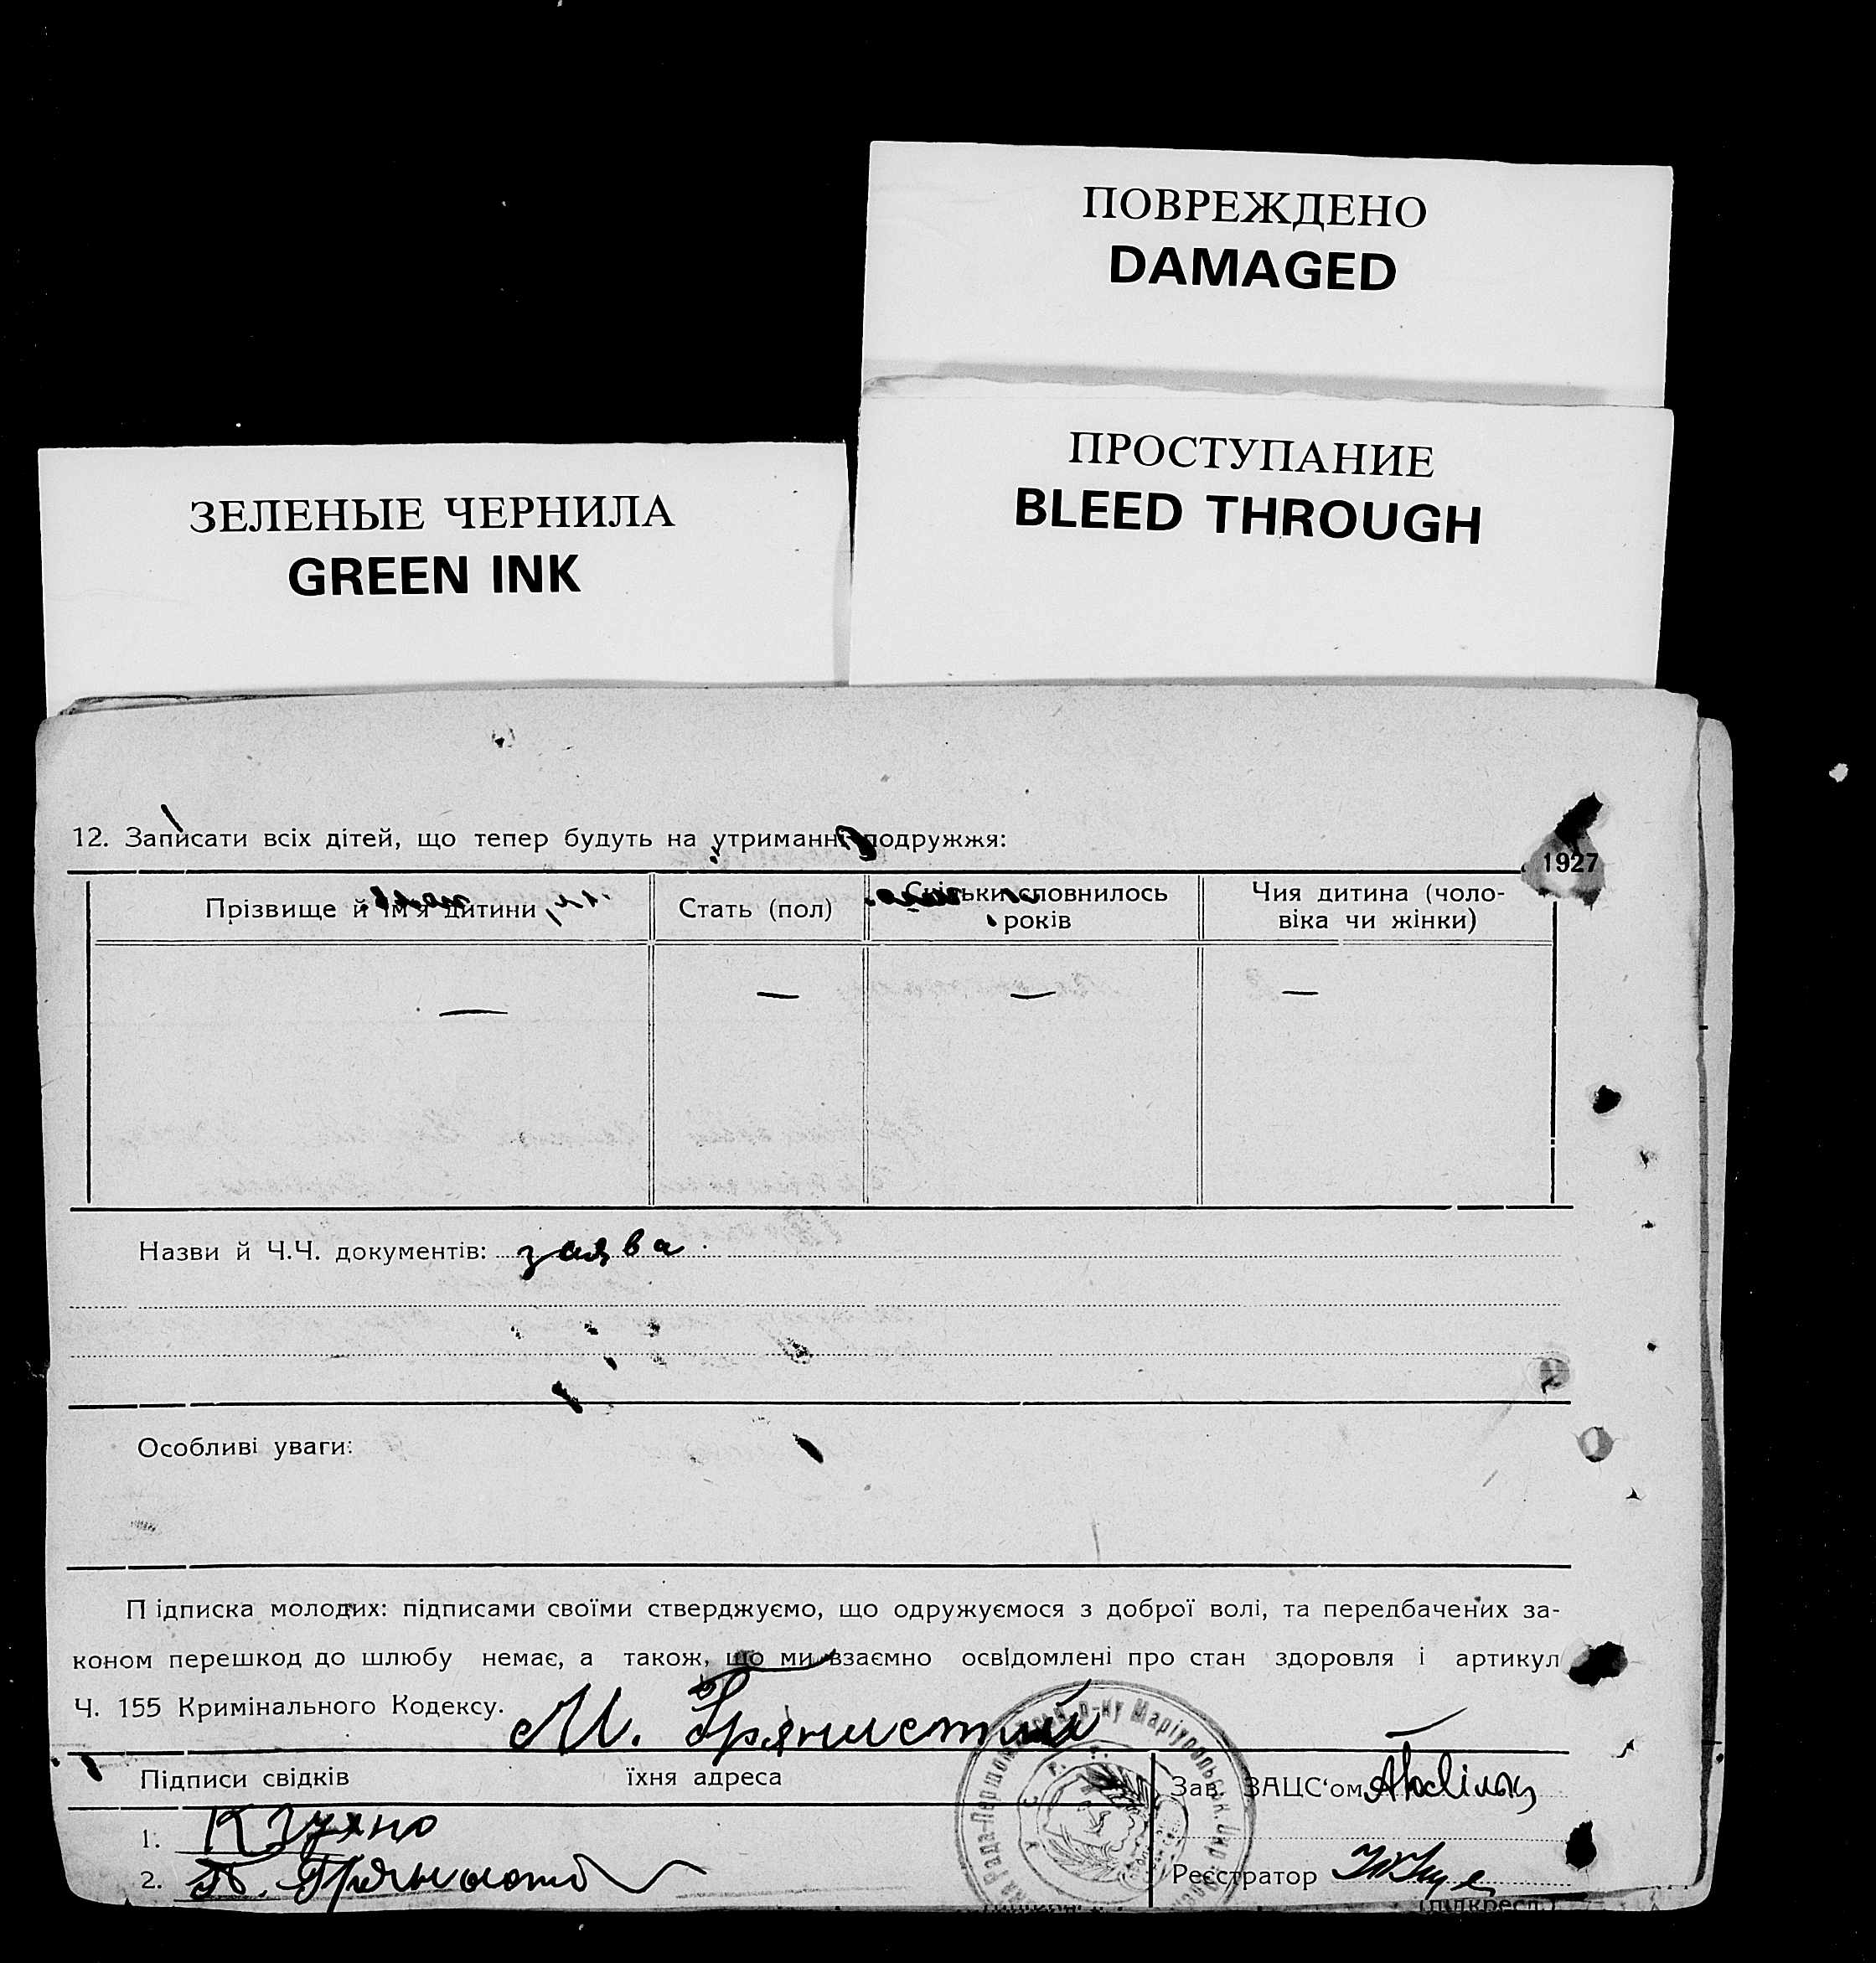 ПОВРЕЖДЕНО
DAMAGED
ПРОСТУПАНИЕ
BLEED THROUGH
ЗЕЛЕНЫЕ ЧЕРНИЛА
GREEN INK
12. Записати всіх дітей, що тепер будуть на утриманні подружжя:
1927
Прізвище й ім'я дитини
Стать (пол)
Скільки сповнилось
років
Чия дитина (чоло-
віка чи жінки)
— — — —
Назви й Ч.Ч. документів: заява
Особливі уваги:
П ідписка молодих: підписами своїми стверджуємо, що одружуємося з доброї волі, та передбачених за-
коном перешкод до шлюбу немає, а також, що ми взаємно освідомлені про стан здоровля і артикул
Ч. 155 Кримінального Кодексу.
М.
Підписи свідків їхня адреса
Зав. ЗАЦС'ом
1. К
2. П.
Реєстратор
р-ну Маріупольськ. Окр
(підкресл.)